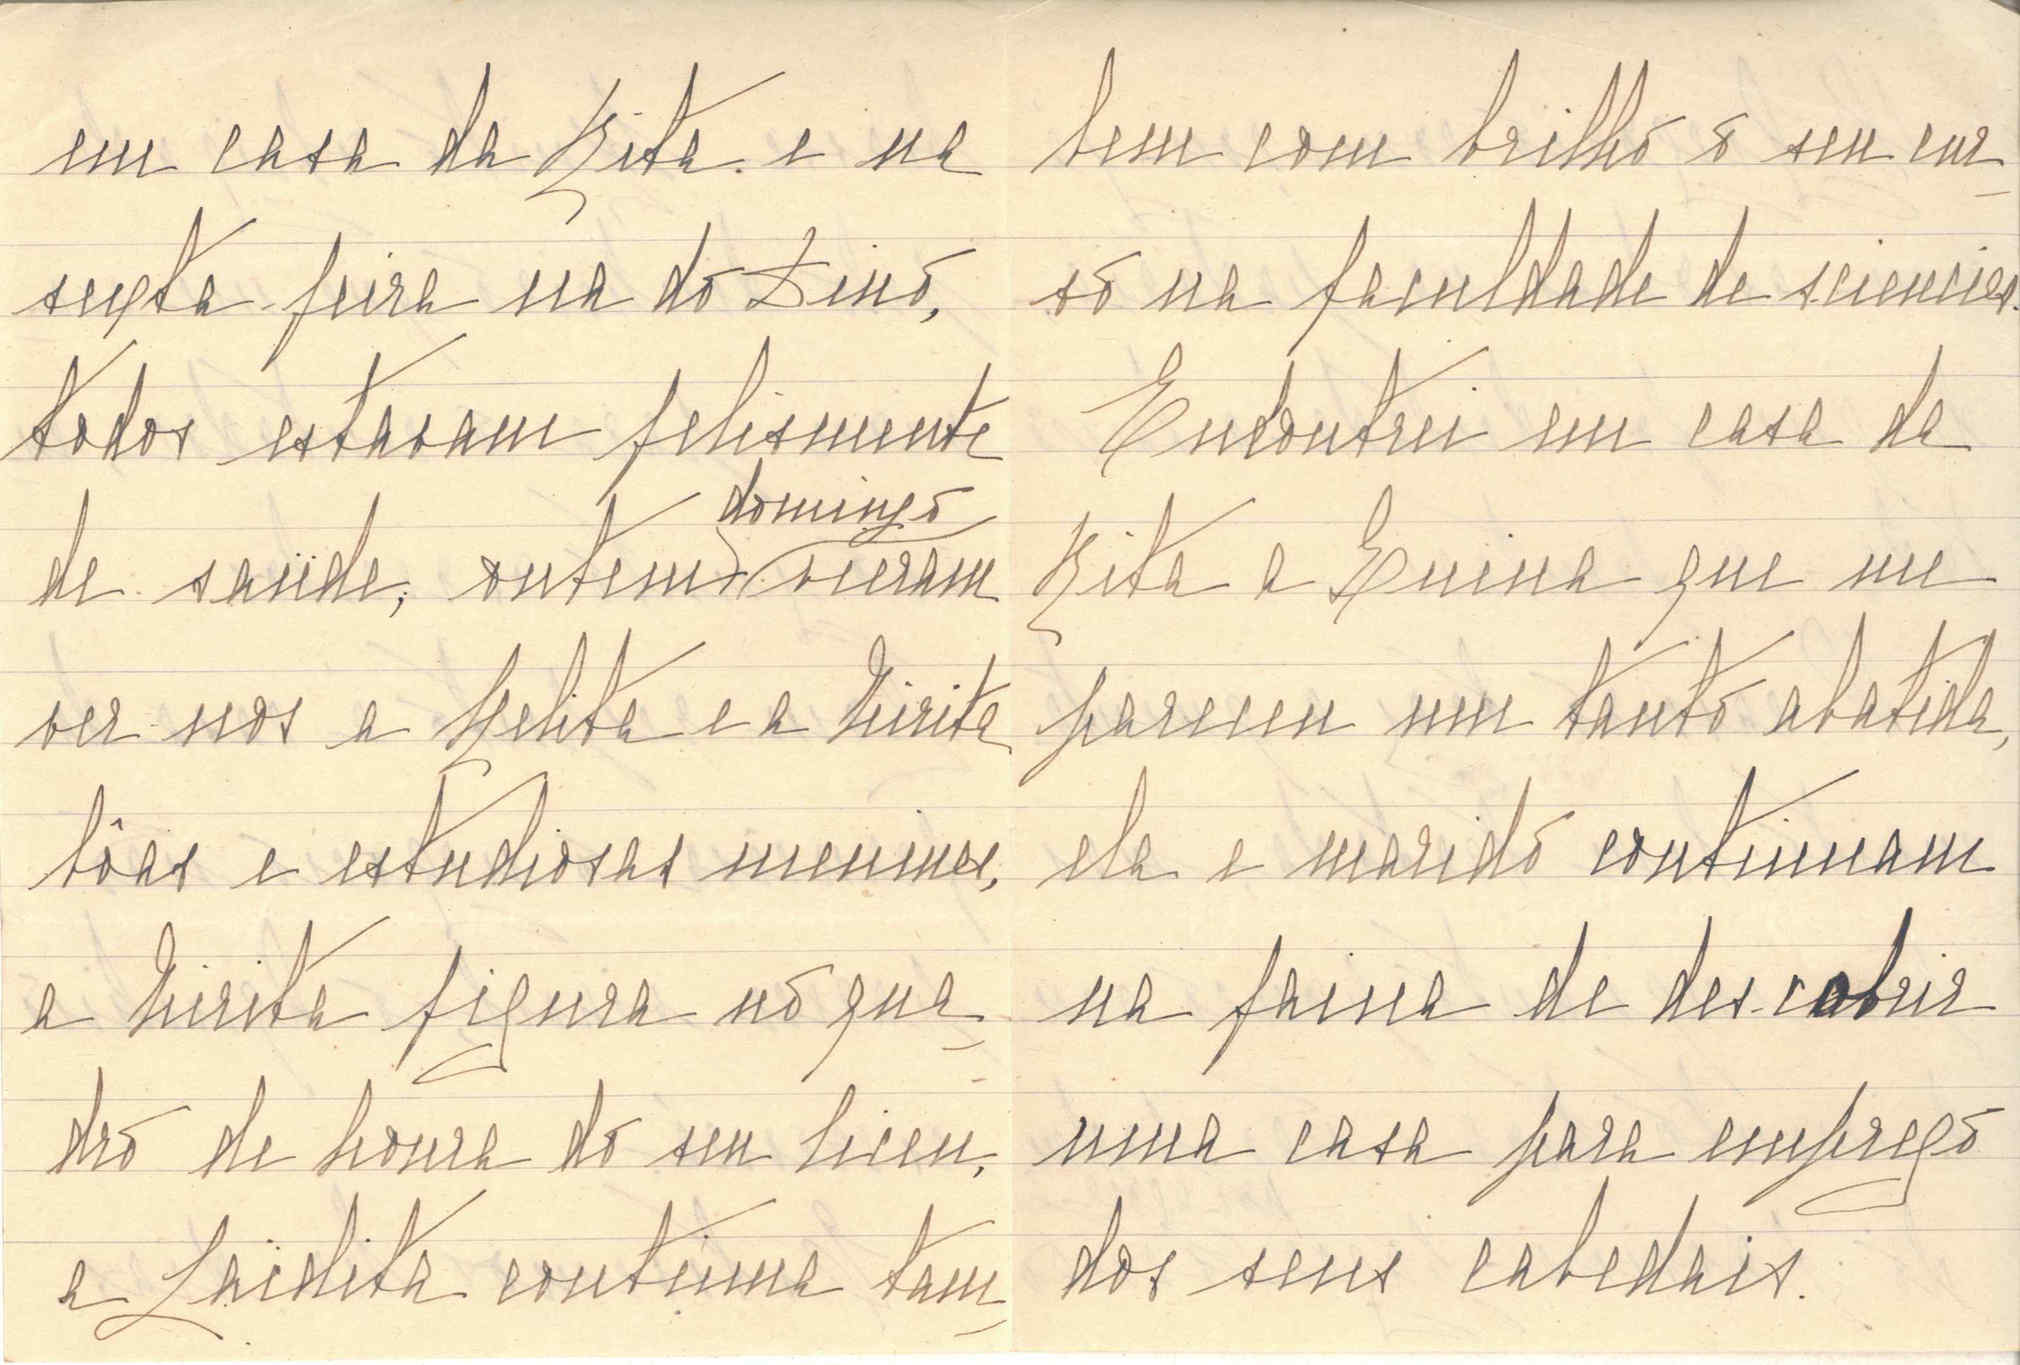 em casa da Zita e na
sexta-feira na do Dino,
todos estavam felismente
de saúde, ontem domingo vieram
ver-nos a Melita e a Mirita
bôas e estudiosas meninas,
a Mirita figura no qua-
dro de honra do seu liceu,
a Laidita continua tam-
bem com brilho o seu cur-
so na faculdade de sciencias.
Encontrei em casa da
Zita a Enina que me
pareceu um tanto abatida,
ela e marido continuam
na faina de descobrir
uma casa para emprego
dos seus cabedais.